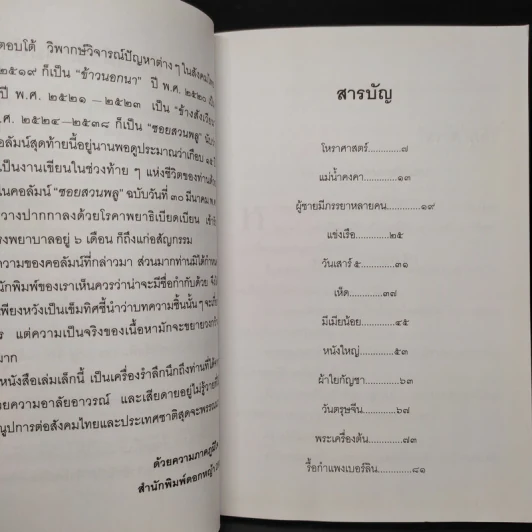 ตอบโต้ วิพากษ์วิจารณ์ปัญหาต่าง ๆ ในสังคมไทย
๒๕๑๙ ก็เป็น "ข้าวนอกนา" ปี พ.ศ. ๒๕๒๐
ปี พ.ศ. ๒๕๒๑ – ๒๕๒๓ เป็น "ข้างสังเวียน"
ศ. ๒๕๒๔–๒๕๓๘ ก็เป็น "ซอยสวนพลู"
คอลัมน์สุดท้ายนี้อยู่นานพอดูประมาณว่าเกือบ ๑๕ ปี
เป็นงานเขียนในช่วงท้าย ๆ แห่งชีวิตของท่าน
ในคอลัมน์ "ซอยสวนพลู" ฉบับวันที่ ๓๐ มีนาคม พ.ศ.
วางปากกาลงด้วยโรคาพยาธิเบียดเบียน เข้า
รงพยาบาลอยู่ ๖ เดือน ก็ถึงแก่อสัญกรรม
ความของคอลัมน์ที่กล่าวมา ส่วนมากท่านมิได้กำหนด
นักพิมพ์ของเราเห็นควรว่าน่าจะมีชื่อกำกับด้วย จึง
เพียงหวังเป็นเข็มทิศชี้นำว่าบทความชิ้นนั้น ๆ จะ
ร แต่ความเป็นจริงของเนื้อหามักจะขยายวง
มาก
หนังสือเล่มเล็กนี้ เป็นเครื่องรำลึกนึกถึงท่านที่ได้
วยความอาลัยอาวรณ์ และเสียดายอยู่ไม่รู้วาย
นูปการต่อสังคมไทยและประเทศชาติสุดจะพรรณนา
ด้วยความภาคภูมิใจ
สำนักพิมพ์ดอกหญ้า
สารบัญ
โหราศาสตร์............๗
แม่น้ำคงคา............๑๓
ผู้ชายมีภรรยาหลายคน............๑๙
แข่งเรือ............๒๕
วันเสาร์ ๕............๓๑
เห็ด............๓๗
มีเมียน้อย............๔๕
หนังใหญ่............๕๓
ผ้าใยกัญชา............๖๓
วันตรุษจีน............๖๗
พระเครื่องต้น............๗๓
รื้อกำแพงเบอร์ลิน............๘๑